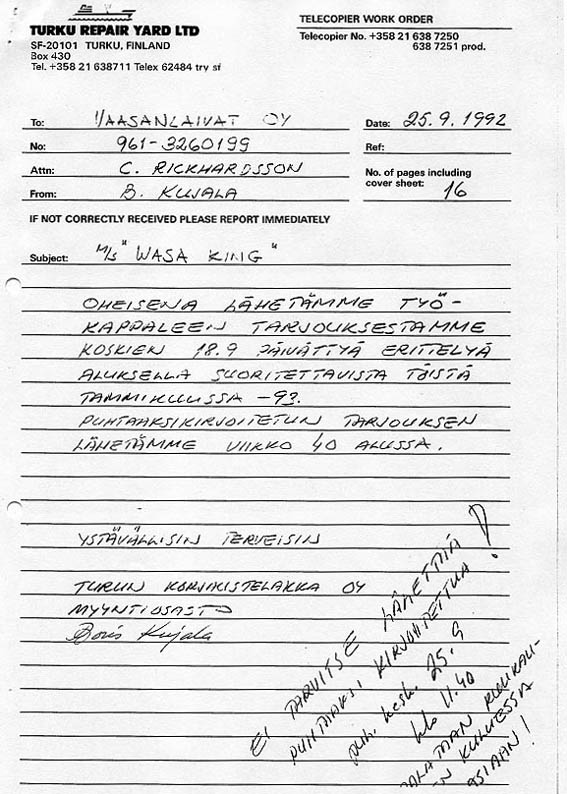 TURKU REPAIR YARD LTD
SF-20101 TURKU, FINLAND
Box 430
Tel. +358 21 638711 Telex 62484 try sf
TELECOPIER WORK ORDER
Telecopier No. +358 21 638 7250
638 7251 prod.
To: VAASANLAIVAT OY
Date: 25.9.1992
No: 961-3260199
Ref:
Attn: C. RICKHARDSSON
No. of pages including
cover sheet: 16
From: B. KUJALA
IF NOT CORRECTLY RECEIVED PLEASE REPORT IMMEDIATELY
Subject: M/S "WASA KING"
OHEISENA LÄHETÄMME TYÖ-
KAPPALEEN TARJOUKSESTAMME
KOSKIEN 18.9 PÄIVÄTTYÄ ERITTELYÄ
ALUKSELLA SUORITETTAVISTA TÖISTÄ
TAMMIKUUSSA -93.
PUHTAAKSIKIRJOITETUN TARJOUKSEN
LÄHETÄMME VIIKKO 40 ALUSSA.
YSTÄVÄLLISIN TERVEISIN
TURUN KORJAUSTELAKKA OY
MYYNTIOSASTO
Boris Kujala
EI TARVITSE LÄHETTÄÄ
PUHTAAKSI KIRJOITETTUA!
puh. kesk. 25.9
klo 11.40
KULUESSA
ASIAAN!